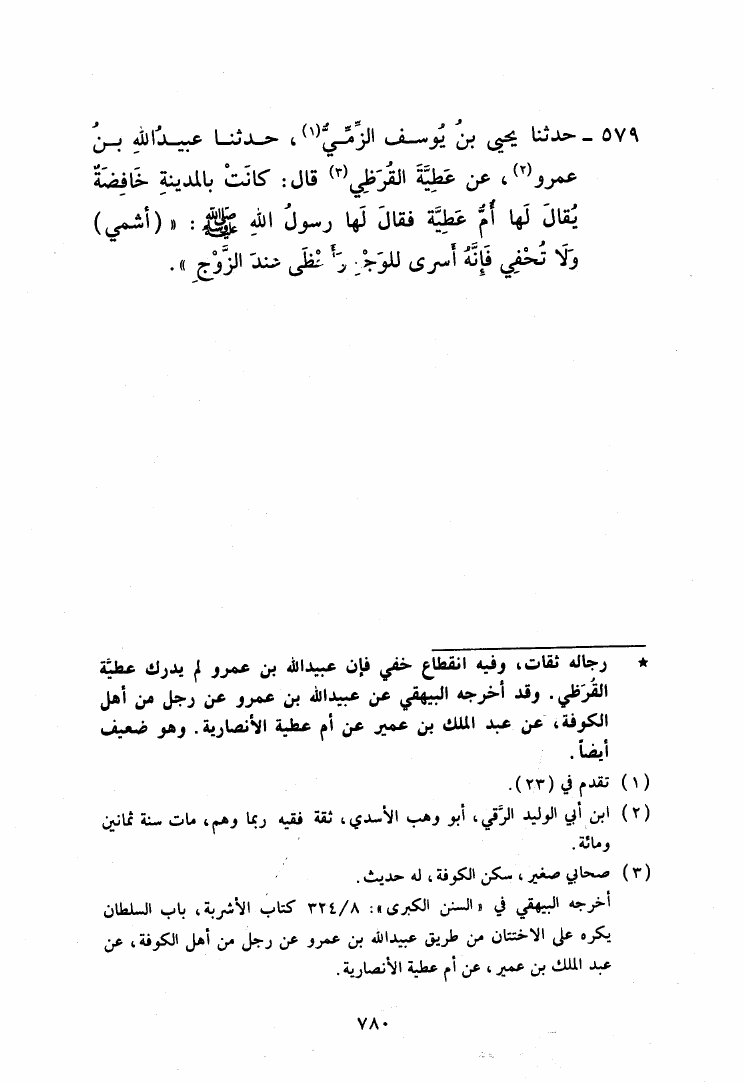 ٥٧٩ ـ حدثنا يحيى بنُ يُوسف الزِّمِّيُّ(١)، حدثنا عبيدُاللهِ بنُ
عمرو(٢)، عن عَطِيَّةَ القُرَظِي(٣) قال: كانَتْ بالمدينةِ خَافِضَةٌ
يُقالَ لَها أُمُّ عَطِيَّة فقالَ لَها رسولُ اللهِ ﷺ: «(أشمي)
وَلَا تُحْفِي فَإِنَّهُ أَسرى للوَجْهِ عندَ الزَّوْجِ».
★ رجاله ثقات، وفيه انقطاع خفي فإن عبيدالله بن عمرو لم يدرك عطيَّة
القُرَظي. وقد أخرجه البيهقي عن عبيدالله بن عمرو عن رجل من أهل
الكوفة، عن عبد الملك بن عمير عن أم عطية الأنصارية. وهو ضعيف
أيضاً.
(١) تقدم في (٢٣).
(٢) ابن أبي الوليد الرَّقي، أبو وهب الأسدي، ثقة فقيه ربما وهم، مات سنة ثمانين
ومائة.
(٣) صحابي صغير، سكن الكوفة، له حديث.
أخرجه البيهقي في «السنن الكبرى»: ٣٢٤/٨ كتاب الأشربة، باب السلطان
يكره على الاختتان من طريق عبيدالله بن عمرو عن رجل من أهل الكوفة، عن
عبد الملك بن عمير، عن أم عطية الأنصارية.
٧٨٠